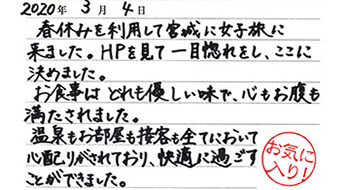 2020年 3月 4日
春休みを利用して宮城に女子旅に
来ました。HPを見て一目惚れをし、ここに
決めました。
お食事はどれも優しい味で、心もお腹も
満たされました。
温泉もお部屋も接客も全てにおいて
心配りがされており、快適に過ごす
ことができました。
お気に
入り!